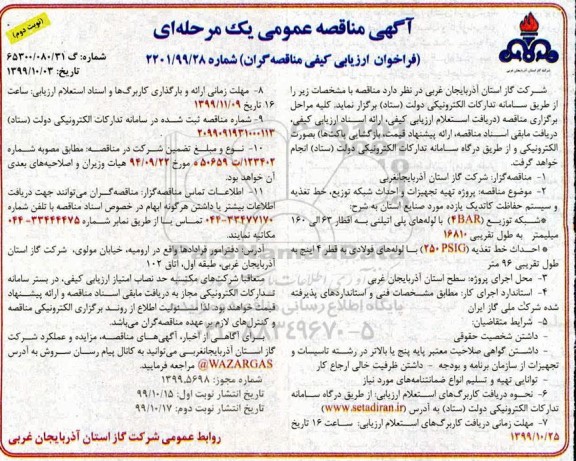 (نوبت دوم)
آگهی مناقصه عمومی یک مرحله‌ای
(فراخوان ارزیابی کیفی مناقصه‌گران) شماره ۲۲۰۱/۹۹/۲۸
شماره: گ ۶۵۳۰۰/۰۸۰/۳۱
تاریخ: ۱۳۹۹/۱۰/۰۳
شرکت گاز استان آذربایجان غربی
شرکت گاز استان آذربایجان غربی در نظر دارد مناقصه با مشخصات زیر را
از طریق سامانه تدارکات الکترونیکی دولت (ستاد) برگزار نماید. کلیه مراحل
برگزاری مناقصه (دریافت استعلام ارزیابی کیفی، ارائه اسناد ارزیابی کیفی،
دریافت مابقی اسناد مناقصه، ارائه پیشنهاد قیمت، بازگشایی پاکت‌ها) بصورت
الکترونیکی و از طریق درگاه سامانه تدارکات الکترونیکی دولت (ستاد) انجام
خواهد گرفت.
۱- مناقصه‌گزار: شرکت گاز استان آذربایجانغربی
۲- موضوع مناقصه: پروژه تهیه تجهیزات و احداث شبکه توزیع، خط تغذیه
و سیستم حفاظت کاتدیک یازده مورد صنایع استان به شرح:
*شبکه توزیع (4BAR) با لوله‌های پلی اتیلنی به اقطار ۶۳ الی ۱۶۰
میلیمتر به طول تقریبی ۱۶۸۱۰
* احداث خط تغذیه (۲۵۰ PSIG) با لوله‌های فولادی به قطر ۴ اینچ به
طول تقریبی ۹۶ متر
۳- محل اجرای پروژه: سطح استان آذربایجان غربی
۴- استاندارد اجرای کار: مطابق مشخصات فنی و استانداردهای پذیرفته
شده شرکت ملی گاز ایران
۵- شرایط متقاضیان:
- داشتن شخصیت حقوقی
- داشتن گواهی صلاحیت معتبر پایه پنج یا بالاتر در رشته تاسیسات و
تجهیزات از سازمان برنامه و بودجه - داشتن ظرفیت خالی ارجاع کار
- توانایی تهیه و تسلیم انواع ضمانتنامه‌های مورد نیاز
۶- نحوه دریافت کاربرگ‌های استعلام ارزیابی: از طریق درگاه سامانه
تدارکات الکترونیکی دولت (ستاد) به آدرس (www.setadiran.ir)
۷- مهلت زمانی دریافت کاربرگ‌های استعلام ارزیابی: ساعت ۱۶ تاریخ
۱۳۹۹/۱۰/۲۵
۸- مهلت زمانی ارائه و بارگذاری کاربرگ‌ها و اسناد استعلام ارزیابی: ساعت
۱۶ تاریخ ۱۳۹۹/۱۱/۰۹
۹- شماره مناقصه ثبت شده در سامانه تدارکات الکترونیکی دولت (ستاد)
۲۰۹۹۰۹۱۹۳۱۰۰۰۱۱۳
۱۰- نوع و مبلغ تضمین شرکت در مناقصه: مطابق مصوبه شماره
۱۲۳۴۰۲/ت ۵۰۶۵۹ ه مورخ ۹۴/۰۹/۲۲ هیات وزیران و اصلاحیه‌های بعدی
آن خواهد بود.
۱۱- اطلاعات تماس مناقصه‌گزار: مناقصه‌گران می‌توانند جهت دریافت
اطلاعات بیشتر یا داشتن هرگونه ابهام در خصوص اسناد مناقصه با تلفن شماره
۰۴۴-۳۳۴۷۷۱۷۰ تماس یا از طریق نمابر شماره ۰۴۴-۳۳۴۴۴۴۷۵
مکاتبه نمایند.
آدرس: دفتر امور قراردادها واقع در ارومیه، خیابان مولوی، شرکت گاز استان
آذربایجان غربی، طبقه اول، اتاق ۱۰۲
متعاقبا شرکت‌های مکتسبه حد نصاب امتیاز ارزیابی کیفی، در بستر سامانه
تدارکات الکترونیکی مجاز به دریافت مابقی اسناد مناقصه و ارائه پیشنهاد
قیمت خواهند بود. لذا مسئولیت اطلاع از روند برگزاری الکترونیکی مناقصه
و کنترل‌های لازم بر عهده مناقصه‌گران می‌باشد.
برای آگاهی از اخبار، آگهی‌های مناقصه، مزایده و عملکرد شرکت
گاز استان آذربایجانغربی می‌توانید به کانال پیام رسان سروش به آدرس
@WAZARGAS مراجعه فرمایید.
شماره مجوز: ۱۳۹۹.۵۶۹۸
تاریخ انتشار نوبت اول: ۹۹/۱۰/۱۵
تاریخ انتشار نوبت دوم: ۹۹/۱۰/۱۷
روابط عمومی شرکت گاز استان آذربایجان غربی